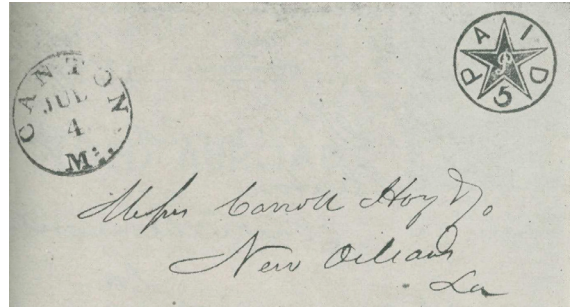 CANTON
JUL
4
Mi.
PAID
P
5
Messrs Carroll Hoy & Co
New Orleans
La